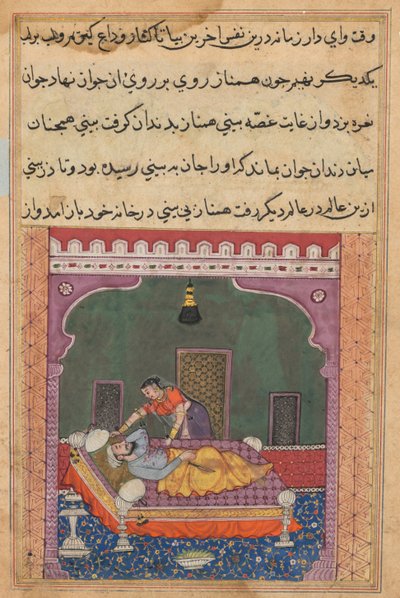 وقت واي دار زمانه درین نفس آخرین بیا تا کنار و وداع کنیم و لب بر لب
یکدیکر نهیم جون همناز روي بر روي ان جوان نهاد جوان
نعره بزد و از غایت غصه بیني همناز بدندان گرفت بیني همجنان
میان دندان جوان بماند او را جان به بیني رسیده بود و تا در بیني
ازین عالم در عالم دیکر رفت همناز بي بیني در خانه خود باز امد و از